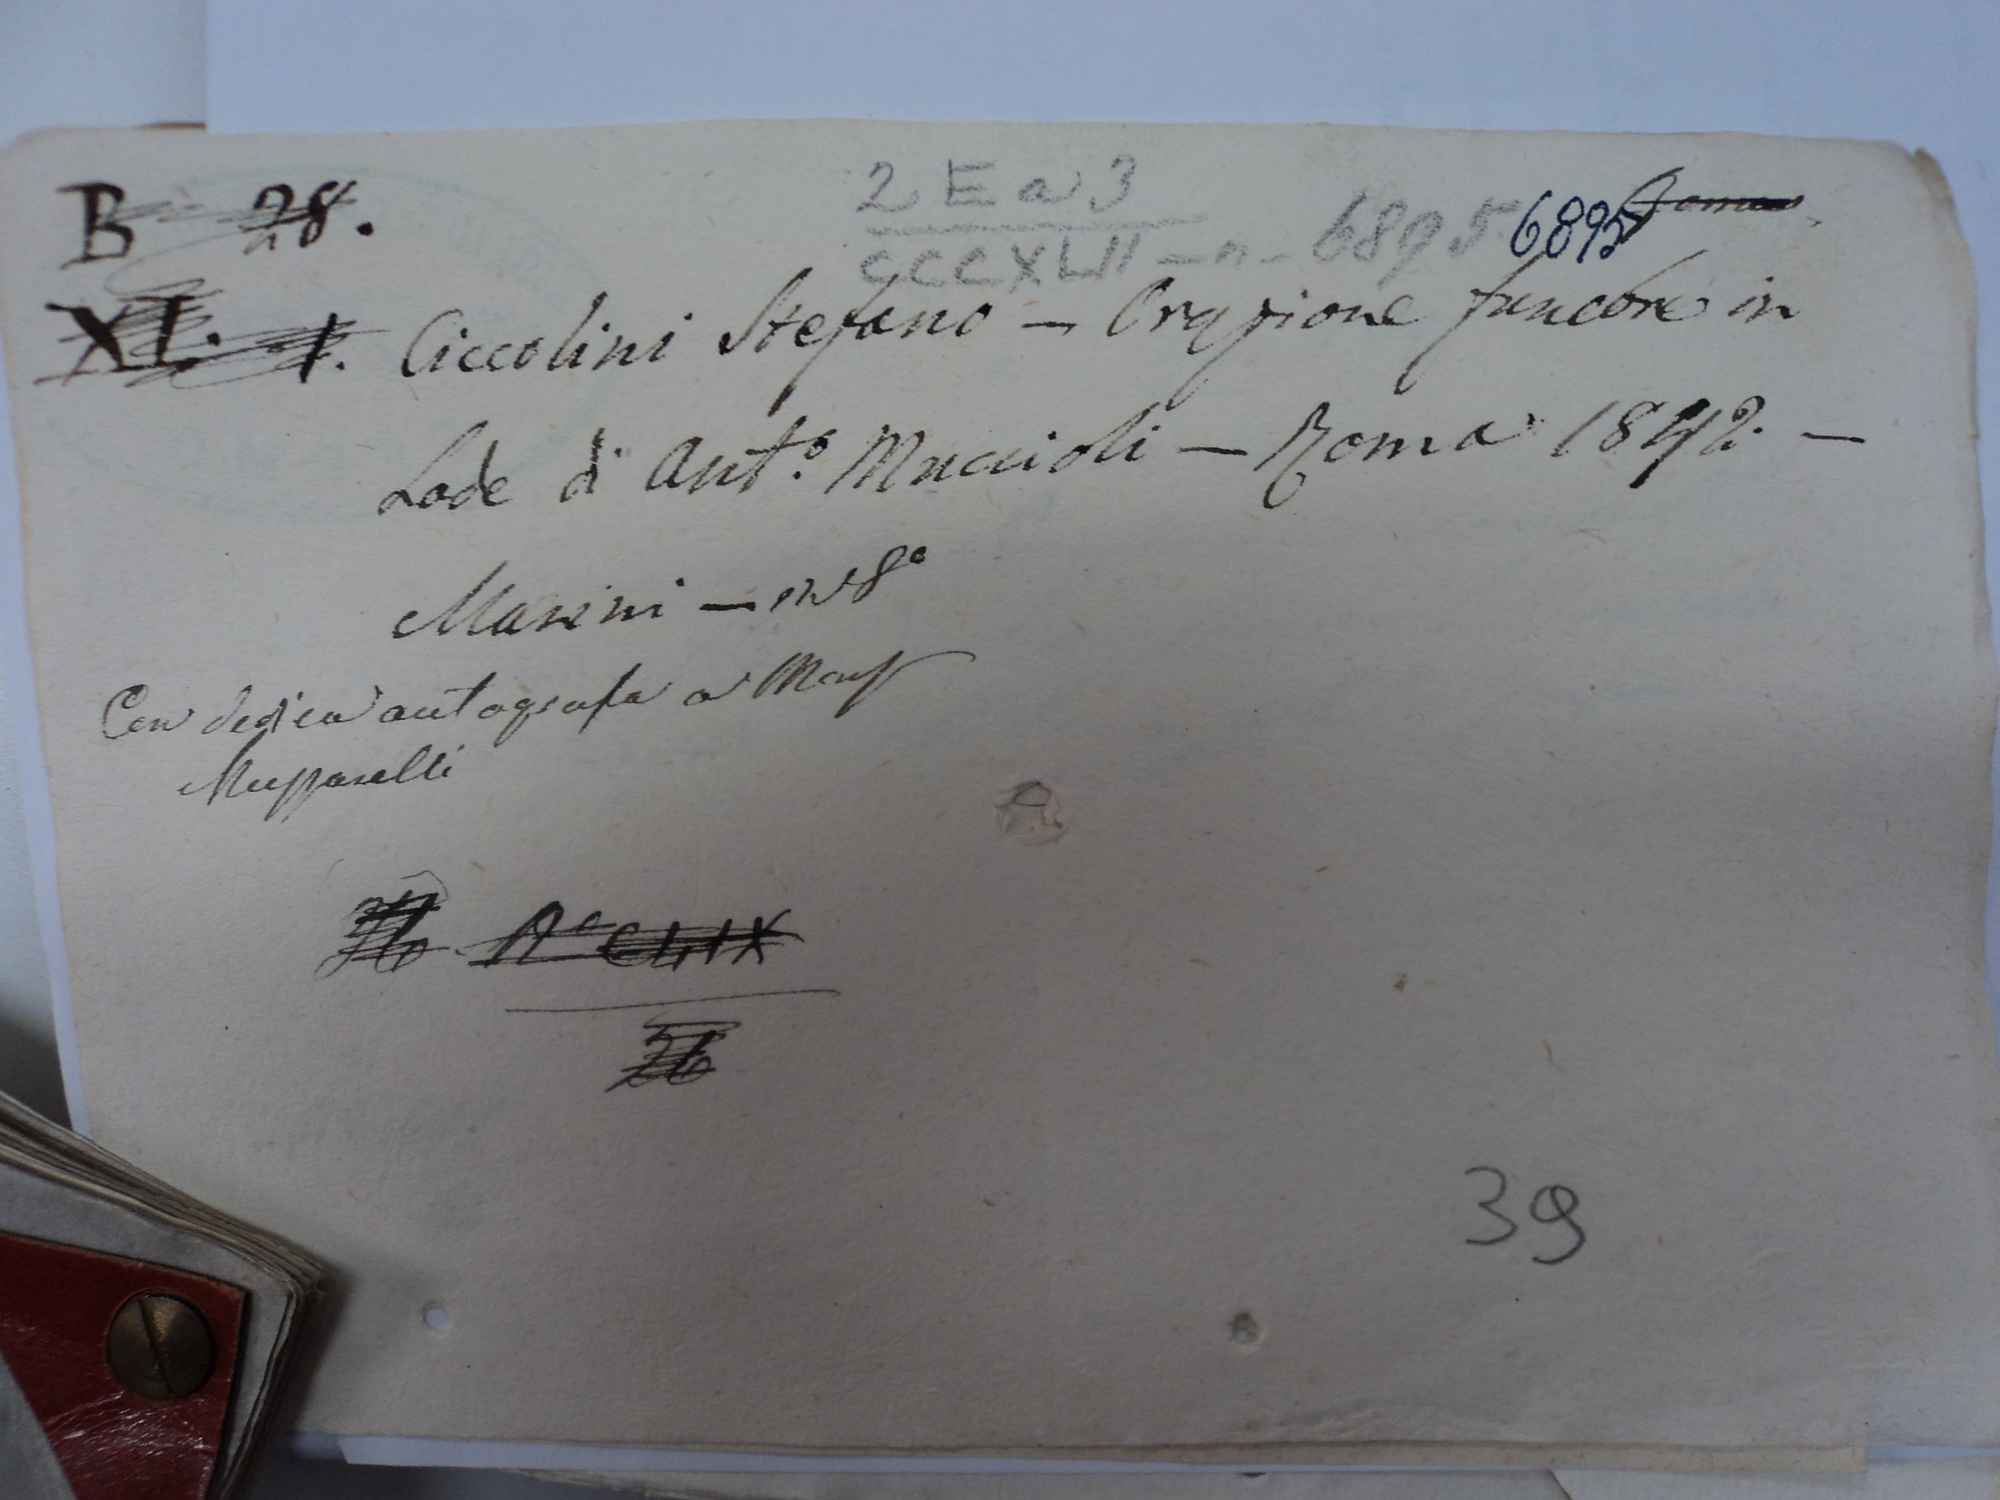 B 28.
2 E a 3
CCCXLII - n. 6895
6895
Roma
XI. 1. Ciccolini Stefano — Orazione funebre in
Lode di Ant.o Muccioli — Roma 1842. —
Marini — in 8°
Con dedica autografa a
Muzzarelli
36 N° CLIX
36
39